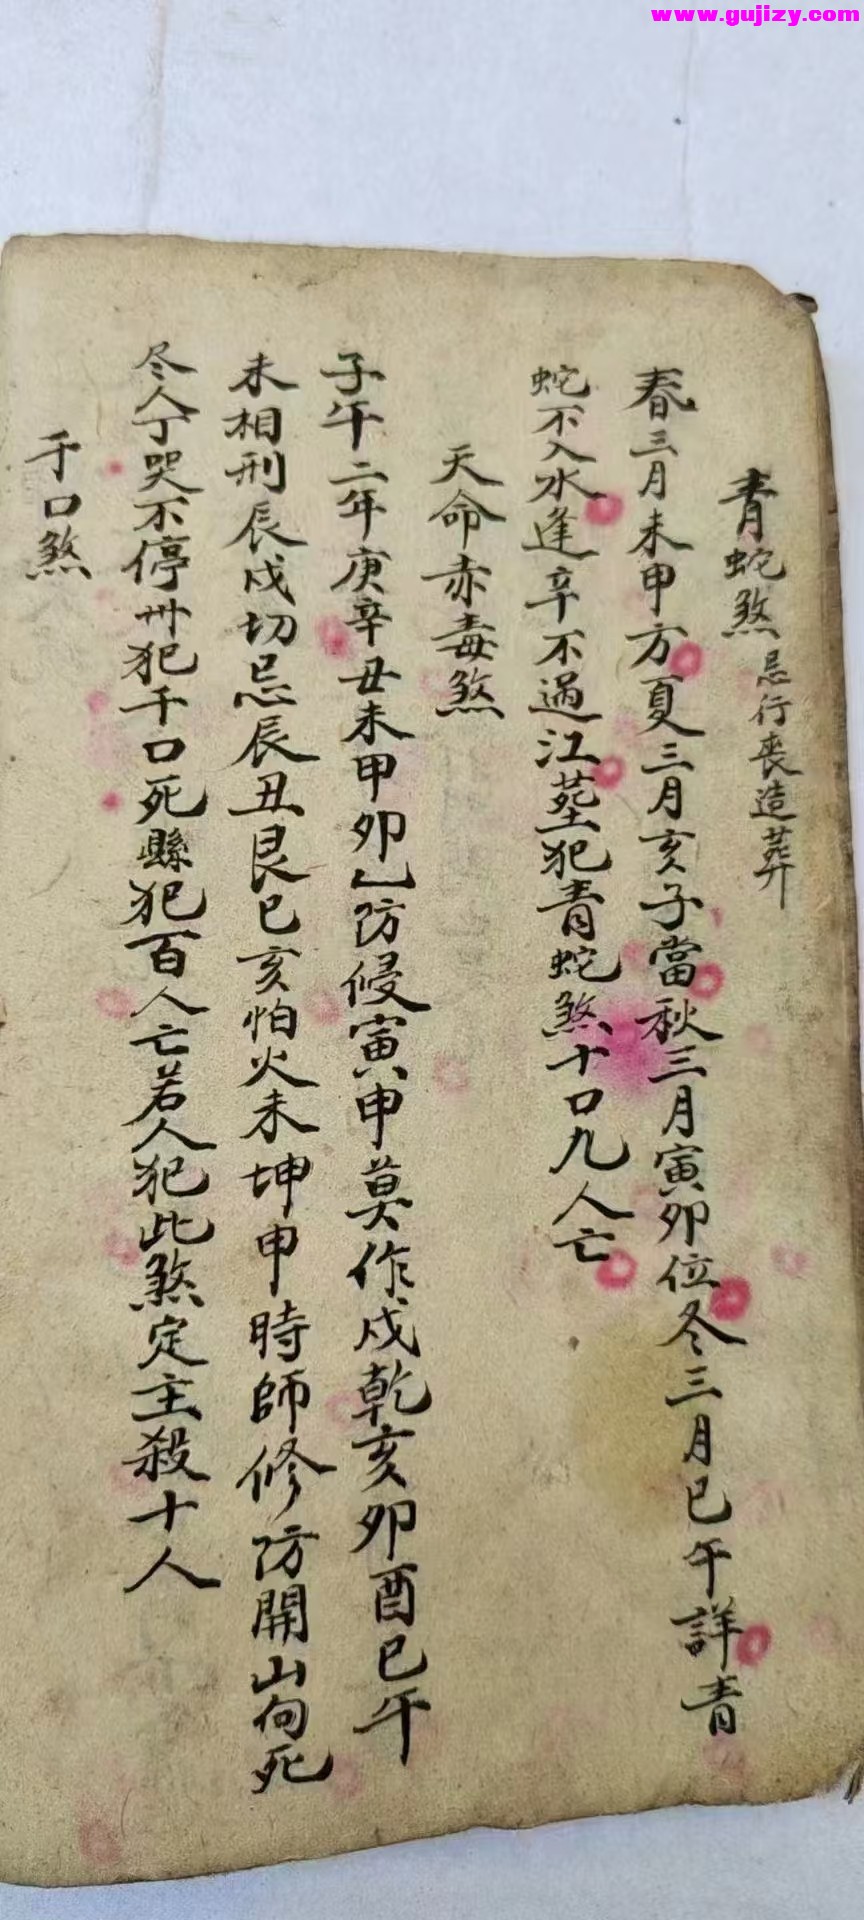 www.gujizy.com
青蛇煞 忌行丧造葬
春三月未申方夏三月亥子當秋三月寅卯位冬三月巳午詳青
蛇不入水逢辛不過江茔犯青蛇煞十口九人亡
天命赤毒煞
子午二年庚辛丑未甲卯乙防侵寅申莫作戌乾亥卯酉巳午
未相刑辰戌切忌辰丑艮巳亥怕火未坤申時師修防開山向死
尽人丁哭不停卅犯千口死縣犯百人亡若人犯此煞定主殺十人
千口煞